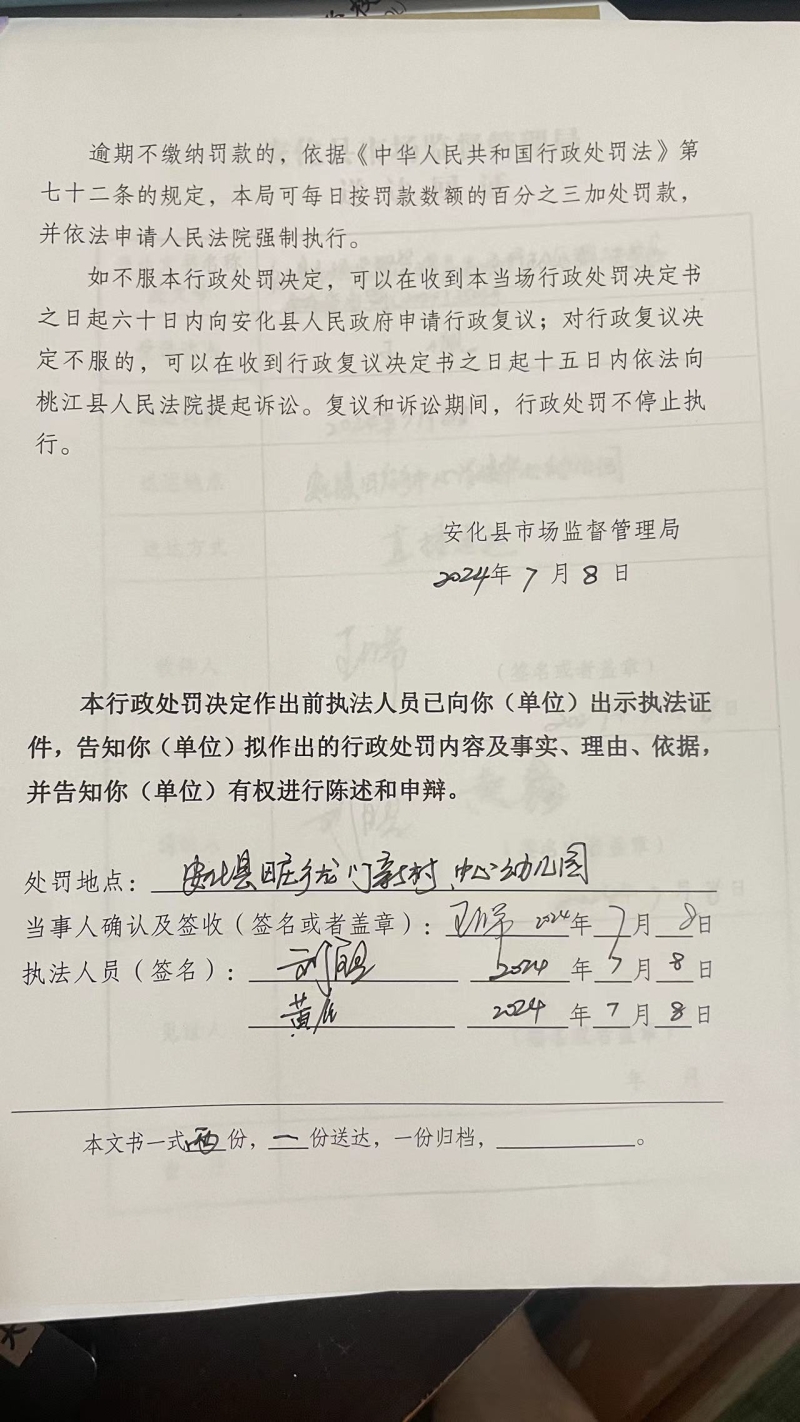 逾期不缴纳罚款的，依据《中华人民共和国行政处罚法》第
七十二条的规定，本局可每日按罚款数额的百分之三加处罚款，
并依法申请人民法院强制执行。
如不服本行政处罚决定，可以在收到本当场行政处罚决定书
之日起六十日内向安化县人民政府申请行政复议；对行政复议决
定不服的，可以在收到行政复议决定书之日起十五日内依法向
桃江县人民法院提起诉讼。复议和诉讼期间，行政处罚不停止执
行。
安化县市场监督管理局
2024年7月8日
本行政处罚决定作出前执法人员已向你（单位）出示执法证
件，告知你（单位）拟作出的行政处罚内容及事实、理由、依据，
并告知你（单位）有权进行陈述和申辩。
处罚地点：安化县田庄乡龙门新村中心幼儿园
当事人确认及签收（签名或者盖章）： 2024年7月8日
执法人员（签名）：刘 2024年7月8日
黄 2024年7月8日
本文书一式两份，一份送达，一份归档，。